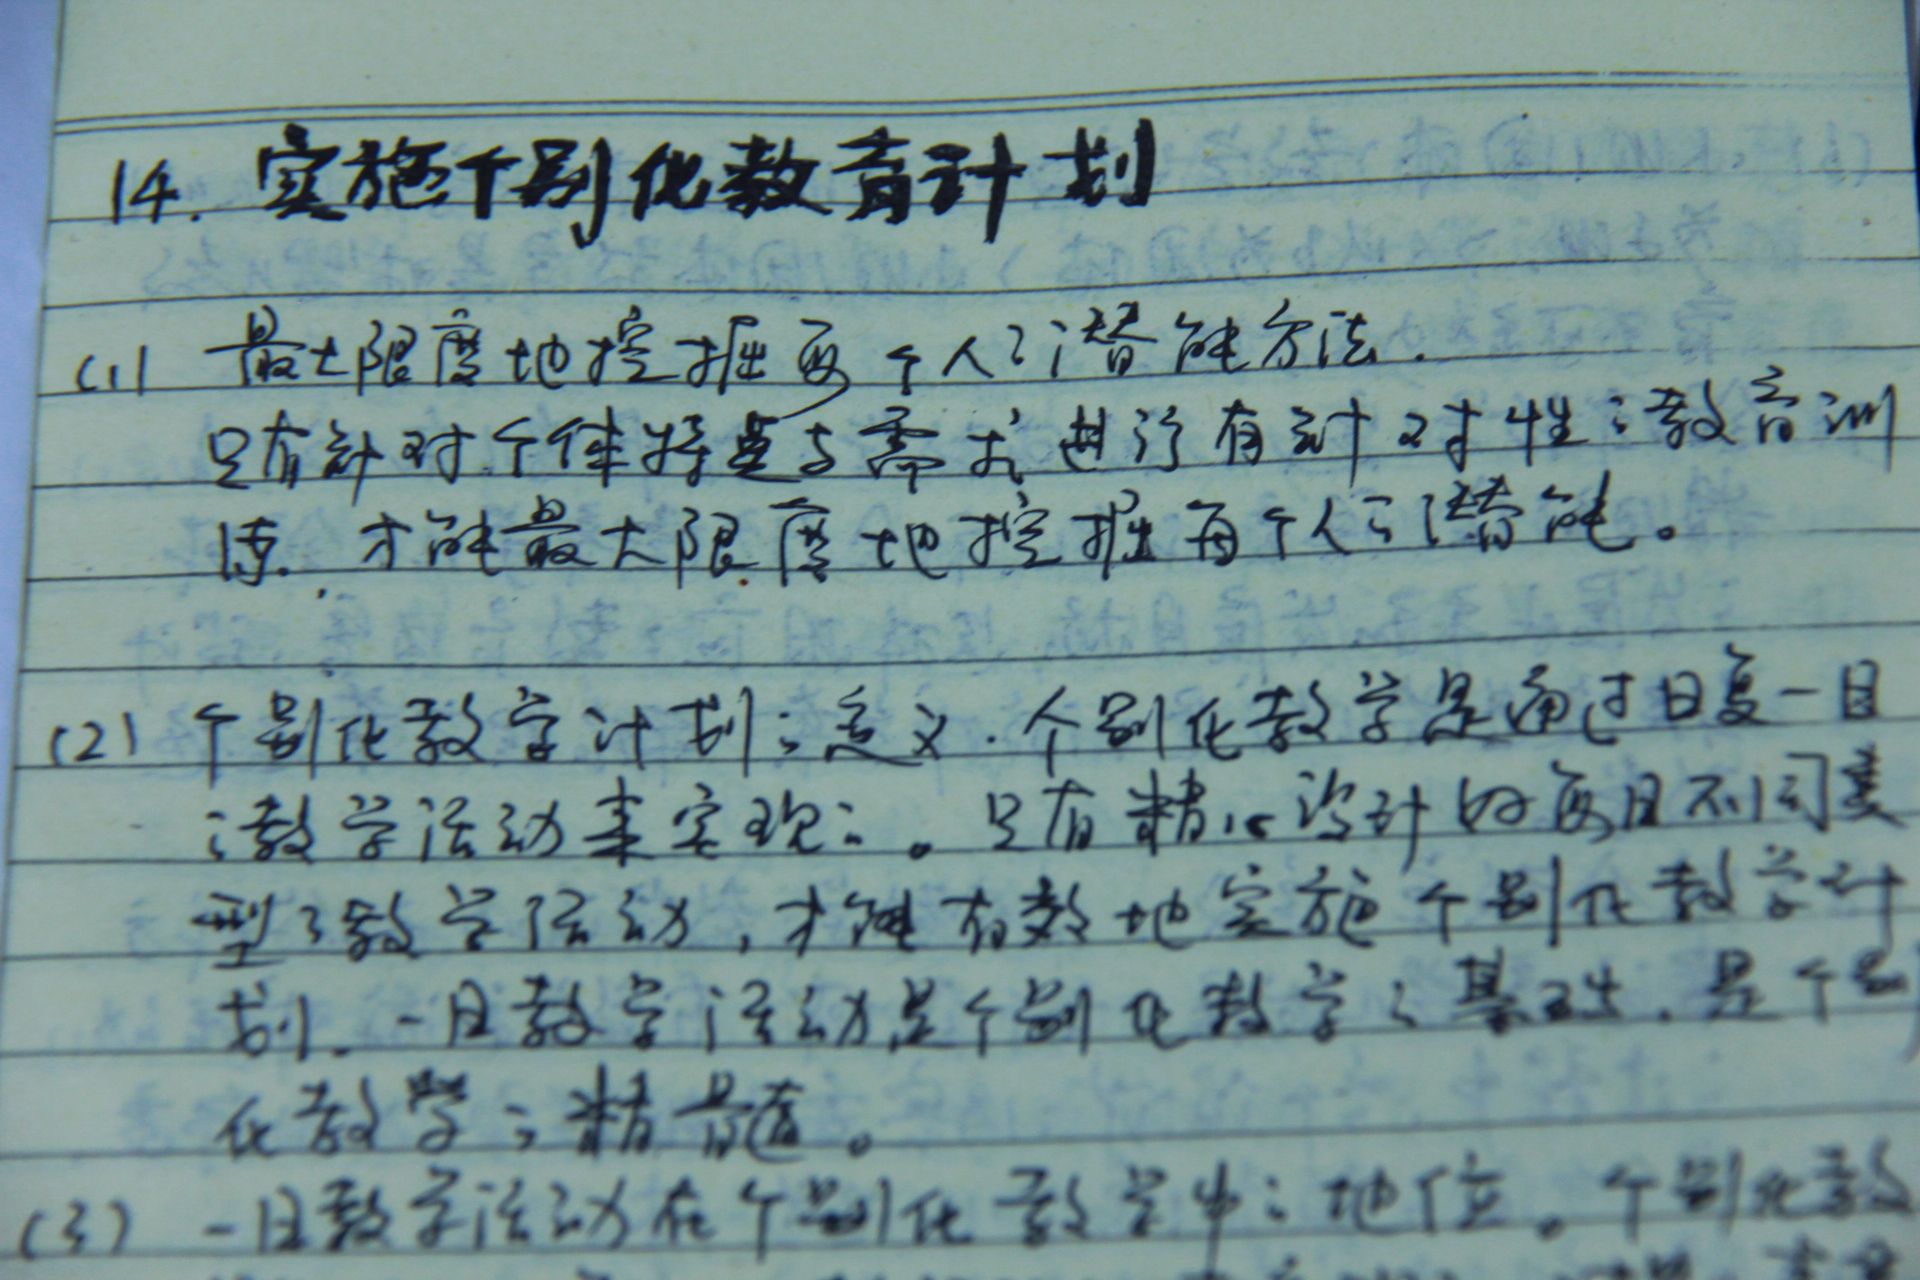 14. 实施个别化教育计划
(1) 最大限度地挖掘每个人之潜能方法.
只有针对个体特点与需求进行有针对性之教育训
练. 才能最大限度地挖掘每个人之潜能。
(2) 个别化教学计划之意义. 个别化教学是通过日复一日
之教学活动来实现之。只有精心设计好每日不同类
型之教学活动,才能有效地实施个别化教学计
划. 一日教学活动是个别化教学之基础. 是个别
化教学之精髓。
(3) 一日教学活动在个别化教学中之地位。个别化教